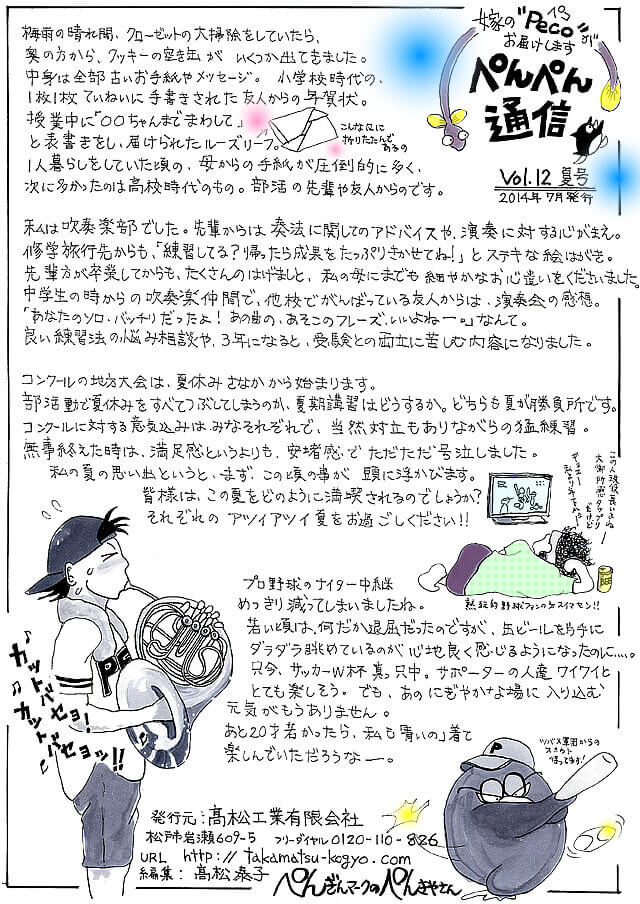 嫁の"Peco"が
ペコ
お届けします
ぺんぺん
通信
Vol.12 夏号
2014年7月発行
梅雨の晴れ間、クローゼットの大掃除をしていたら、
奥の方から、クッキーの空き缶が いくつか出てきました。
中身は全部古いお手紙やメッセージ。 小学校時代の、
1枚1枚ていねいに手書きされた友人からの年賀状。
授業中に「〇〇ちゃんまでまわして」
と表書きをし、届けられたルーズリーフ。
こんな風に
折りたたんで
あるの
1人暮らしをしていた頃の、母からの手紙が圧倒的に多く、
次に多かったのは高校時代のもの。部活の先輩や友人からのです。
私は吹奏楽部でした。先輩からは奏法に関してのアドバイスや、演奏に対する心がまえ。
修学旅行先からも、「練習してる?帰ったら成果をたっぷりきかせてね!」とステキな絵はがき。
先輩方が卒業してからも、たくさんのはげましと、私の母にまでも細やかなお心遣いをくださいました。
中学生の時からの吹奏楽仲間で、他校でがんばっている友人からは、演奏会の感想。
「あなたのソロ・バッチリだったよ!あの曲の、あそこのフレーズ、いいよねー。」なんて。
良い練習法の悩み相談や、3年になると、受験との両立に苦しむ内容になりました。
コンクールの地方大会は、夏休みさなかから始まります。
部活動で夏休みをすべてつぶしてしまうのか、夏期講習はどうするか。どちらも夏が勝負所です。
コンクールに対する意気込みはみなそれぞれで、当然対立もありながらの猛練習。
無事終えた時は、満足感というよりも、安堵感でただただ号泣しました。
私の夏の思い出というと、まず、この頃の事が 頭に浮かびます。
皆様は、この夏をどのように満喫されるのでしょうか?
それぞれの アツイアツイ夏をお過ごしください!!
この人現役長いよねー
大御所感タップリ
だけど
熱狂的野球ファンの方スイマセン!!
プロ野球のナイター中継
めっきり減ってしまいましたね。
若い頃は、何だか退屈だったのですが、缶ビールを片手に
ダラダラ眺めているのが心地良く感じるようになったのに….。
只今、サッカーW杯真っ只中。サポーターの人達ワイワイと
とても楽しそう。でも、あのにぎやかな場に入り込む
元気がもうありません。
あと20才若かったら、私も「青いの」着て
楽しんでいただろうなー。
カットバセョ!
カットバセョッ!!
ツバメ軍団からの
スカウト
待ってます!
P
発行元:髙松工業有限会社
松戸市岩瀬609-5 フリーダイヤル0120-110-826
URL http://takamatsu-kogyo.com
編集:髙松泰子
ぺんぎんマークのぺんきやさん